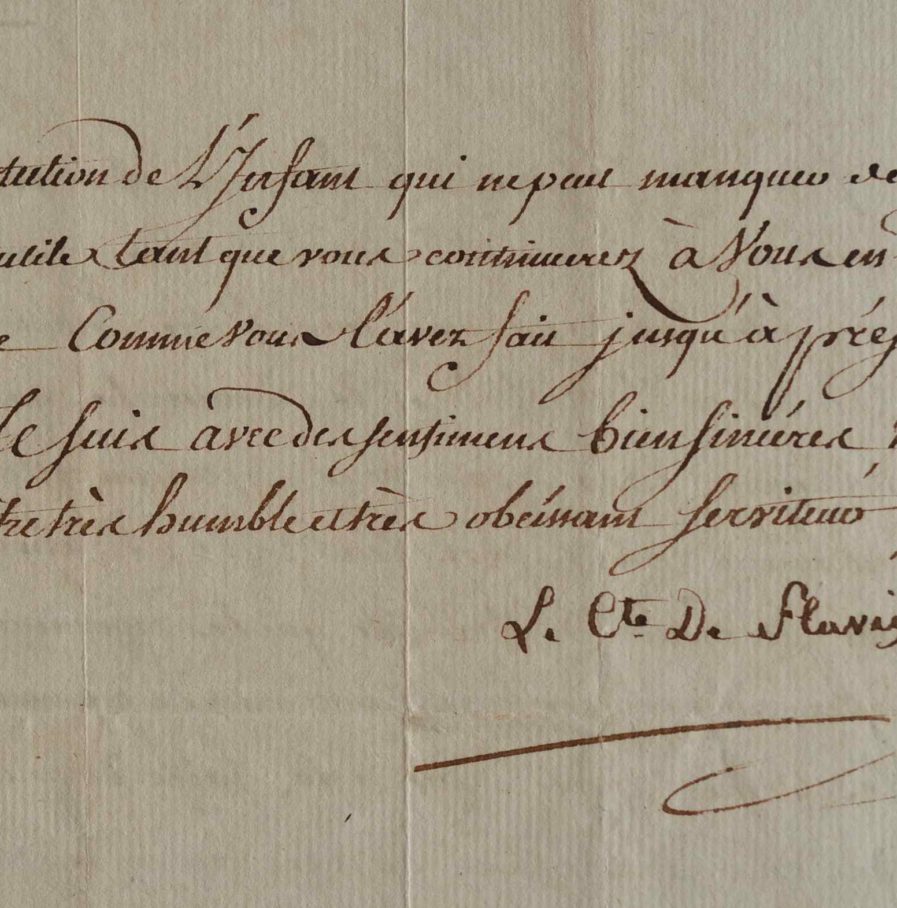 tution de L'Infant qui ne peut manquer de
utile tant que vous continuerez à Vous en
e Comme Vous l'avez fait jusqu'à prés
Je suis avec des sentimens bien sincéres
tre très humble et très obéissant serviteur
Le Cte De Flavig